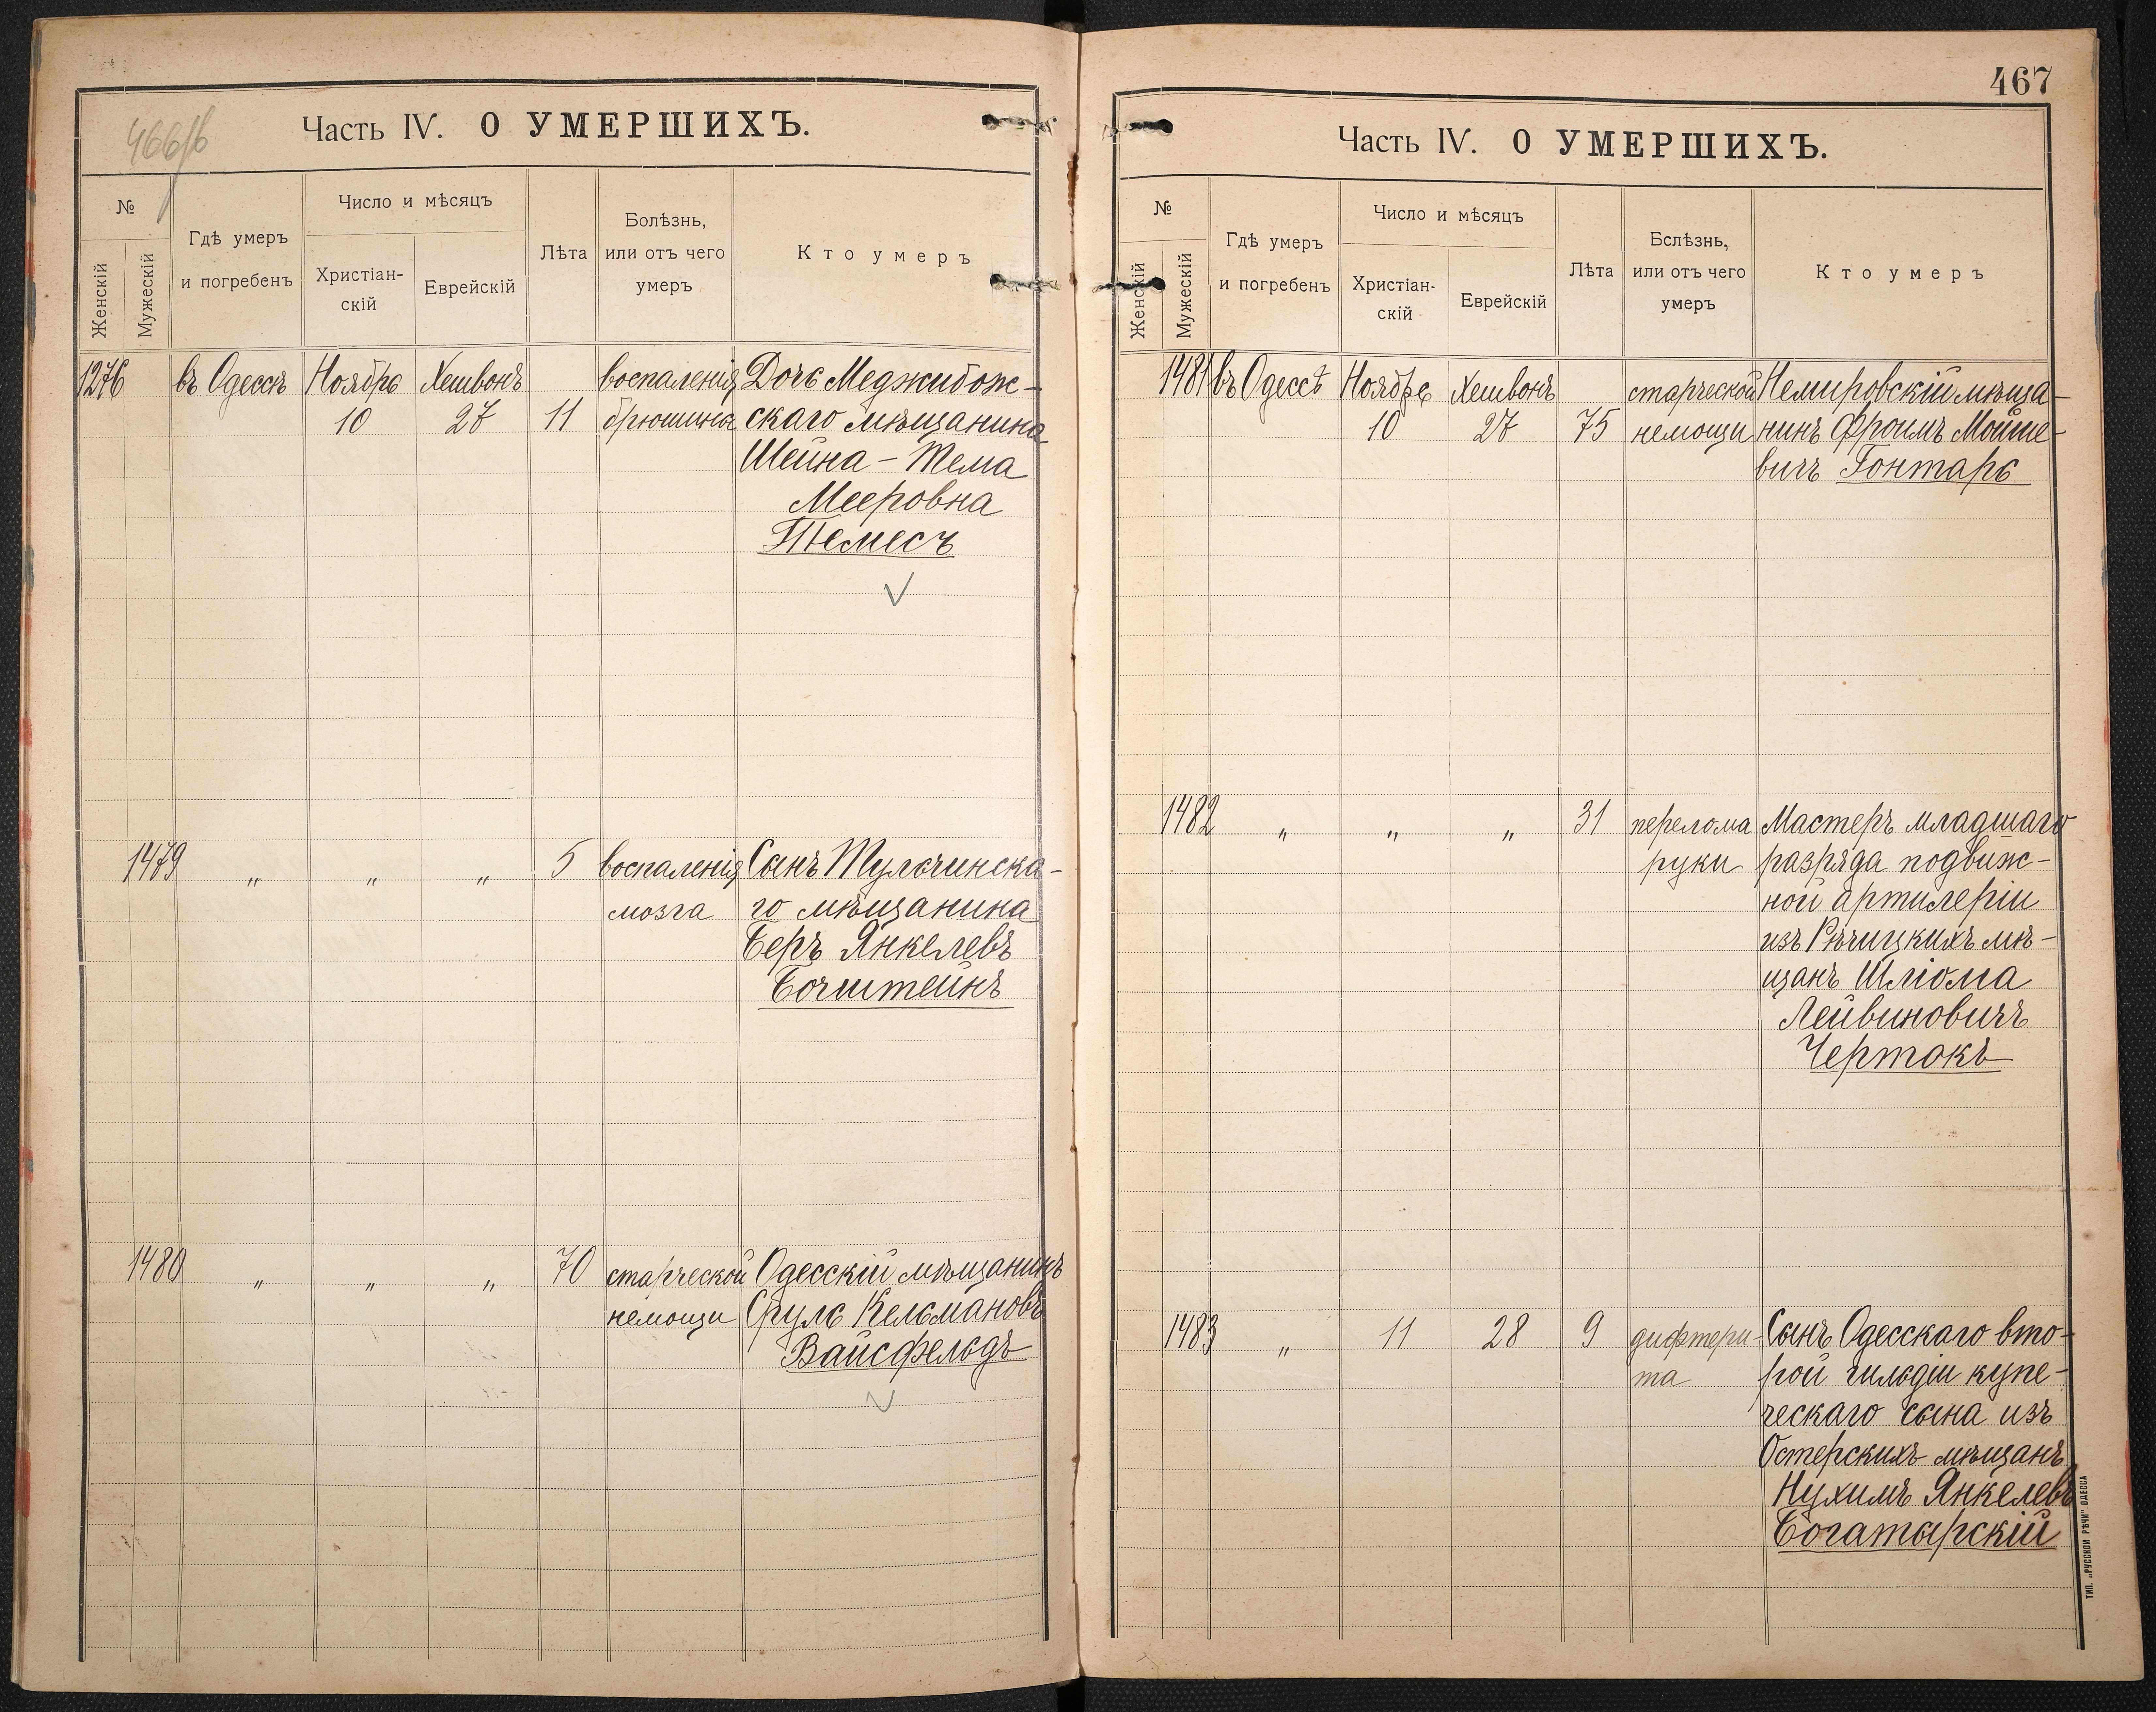 466об
Часть IV. О УМЕРШИХЪ.
№
Женскій
Мужескій
Гдѣ умеръ
и погребенъ
Число и мѣсяцъ
Христіан-
скій
Еврейскій
Лѣта
Болѣзнь,
или отъ чего
умеръ
Кто умеръ
1276 въ Одессѣ Ноябрь Хешвонъ воспаленія Дочь Меджибож-
10 27 11 брюшины скаго мѣщанина
Шейна-Тема
Мееровна
Темесъ
1479 „ „ „ 5 воспаленія Сынъ Тульчинска-
мозга го мѣщанина
Беръ Янкелевъ
Бочштейнъ
1480 „ „ „ 70 старческой Одесскій мѣщанинъ
немощи Сруль Кельмановъ
Вайсфельдъ
467
Часть IV. О УМЕРШИХЪ.
№
Женскій
Мужескій
Гдѣ умеръ
и погребенъ
Число и мѣсяцъ
Христіан-
скій
Еврейскій
Лѣта
Бслѣзнь,
или отъ чего
умеръ
Кто умеръ
1481 въ Одессѣ Ноябрь Хешвонъ старческой Немировскій мѣща-
10 27 75 немощи нинъ Фроимъ Мойше-
вичъ Гонтарь
1482 „ „ „ 31 перелома Мастеръ младшаго
руки разряда подвиж-
ной артилеріи
изъ Рѣчицкихъ мѣ-
щанъ Шліома
Лейвиновичъ
Чертокъ
1483 „ 11 28 9 дифтери- Сынъ Одесскаго вто-
та рой гильдіи купе-
ческаго сына изъ
Остерскихъ мѣщанъ
Нухимъ Янкелевъ
Богатырскій
ТИП. „РУССКОЙ РѢЧИ" ОДЕССА